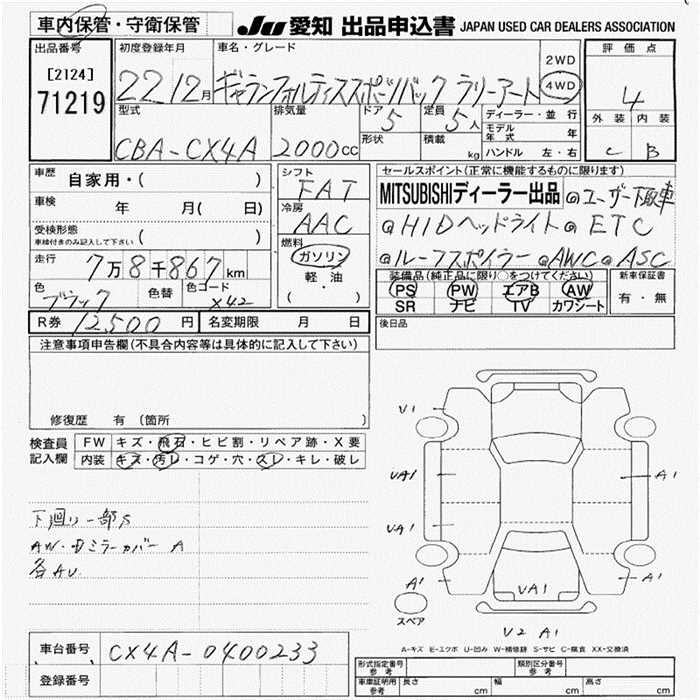 車内保管・守衛保管
JU 愛知 出品申込書 JAPAN USED CAR DEALERS ASSOCIATION
出品番号
[2124]
71219
初度登録年月
22 12月
車名・グレード
ギャランフォルティススポーツバック ラリーアート
2WD
4WD
評価点
4
外装 内装
C B
型式
CBA-CX4A
排気量
2000cc
ドア
5
形状
定員
5人
積載
kg
ディーラー・並行
モデル年式 年
ハンドル 左・右
車歴 自家用・( )
車検 年 月( 日)
受検形態
車検付きのみ記入して下さい ( )
走行 7万8千867km
色 ブラック
色替
色コード X42
シフト
FAT
冷房
AAC
燃料
ガソリン
軽・油
( ・ )
セールスポイント(正常に機能するものに限ります)
MITSUBISHIディーラー出品 @ユーザー下取車
@HIDヘッドライト @ETC
@ルーフスポイラー @AWC @ASC
装備品(純正品に限り○をつけてください)
PS PW エアB AW
SR ナビ TV カワシート
新車保証書
有・無
R券 12,500円
名変期限 月 日
後日品
注意事項申告欄(不具合内容等は具体的に記入して下さい)
修復歴 有(箇所 )
検査員記入欄
FW キズ・飛石・ヒビ割・リペア跡・X要
内装 キズ・汚レ・コゲ・穴・スレ・キレ・破レ
下廻リ一部S
AW・Dミラーカバー A
各AU
V1
UA1
UA1
A1
A1
A1
UA1
V2 A1
スペア
A-キズ E-エクボ U-凹み W-補修跡 S-サビ C-腐食 XX-交換済
車台番号 CX4A-0400233
登録番号
形式指定番号
参考
類別区分番号
参考
車庫証明用
参考
長さ cm
幅 cm
高さ cm